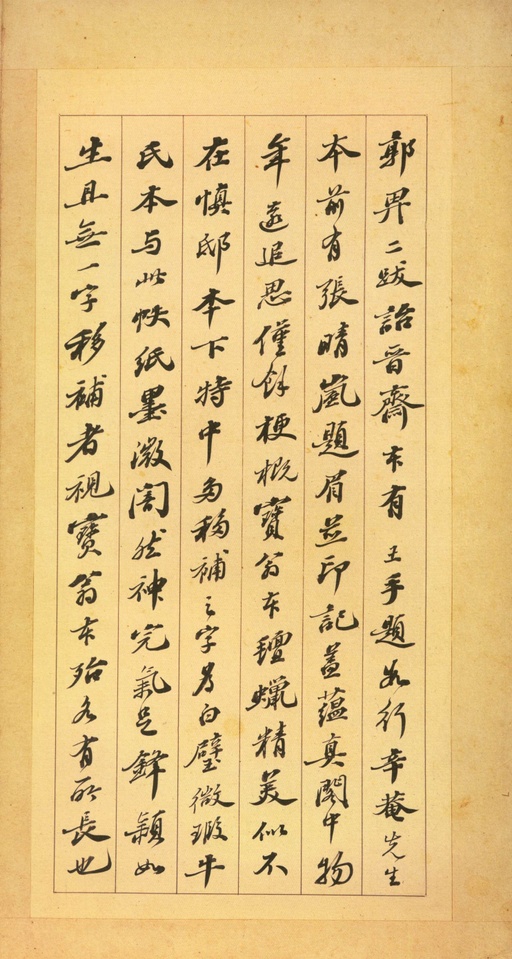 郭畀二跋詒晉齋本有王手題如行辛菴先生
本前有張晴嵐題眉並印記蓋蘊真閣中物
年遠追思僅餘梗概寶翁本氊蠟精美似不
在慎邸本下特中多移補之字為白璧微瑕牛
氏本与此帙紙墨微闇然神完氣足鋒穎如
生且無一字移補者視寶翁本殆各有所長也